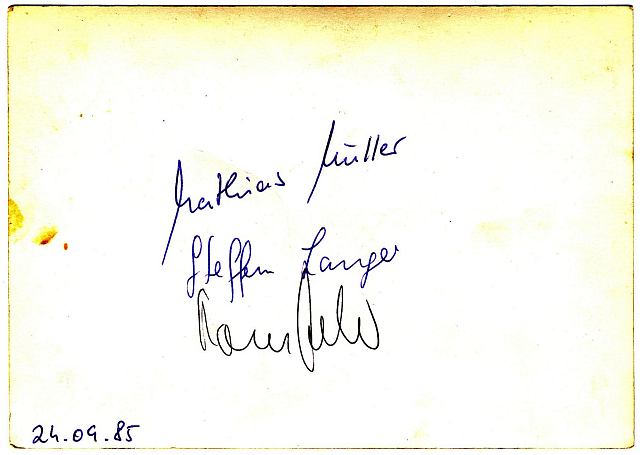 Mathias Müller
Steffen Langer
24.09.85